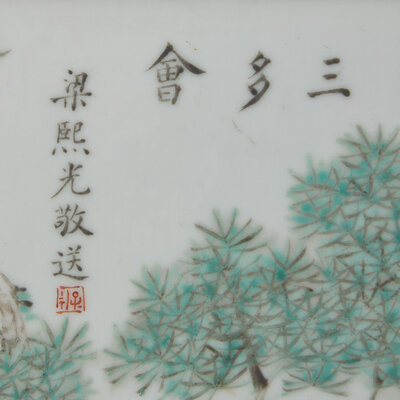 三多會
梁熙光敬送